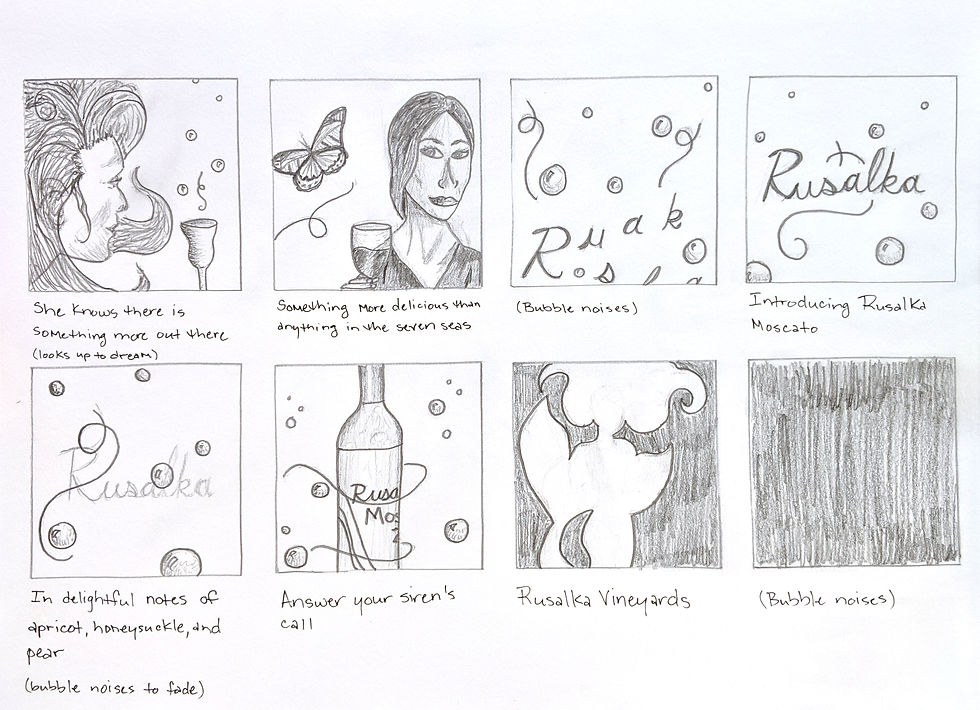 She knows there is
something more out there
(looks up to dream)
Something more delicious than
anything in the seven seas
R u a k
R o s l a
(Bubble noises)
Rusalka
Introducing Rusalka
Moscato
Rusalka
In delightful notes of
apricot, honeysuckle, and
pear
(bubble noises to fade)
Rusa
Mos
2
Answer your siren's
call
Rusalka Vineyards
(Bubble noises)